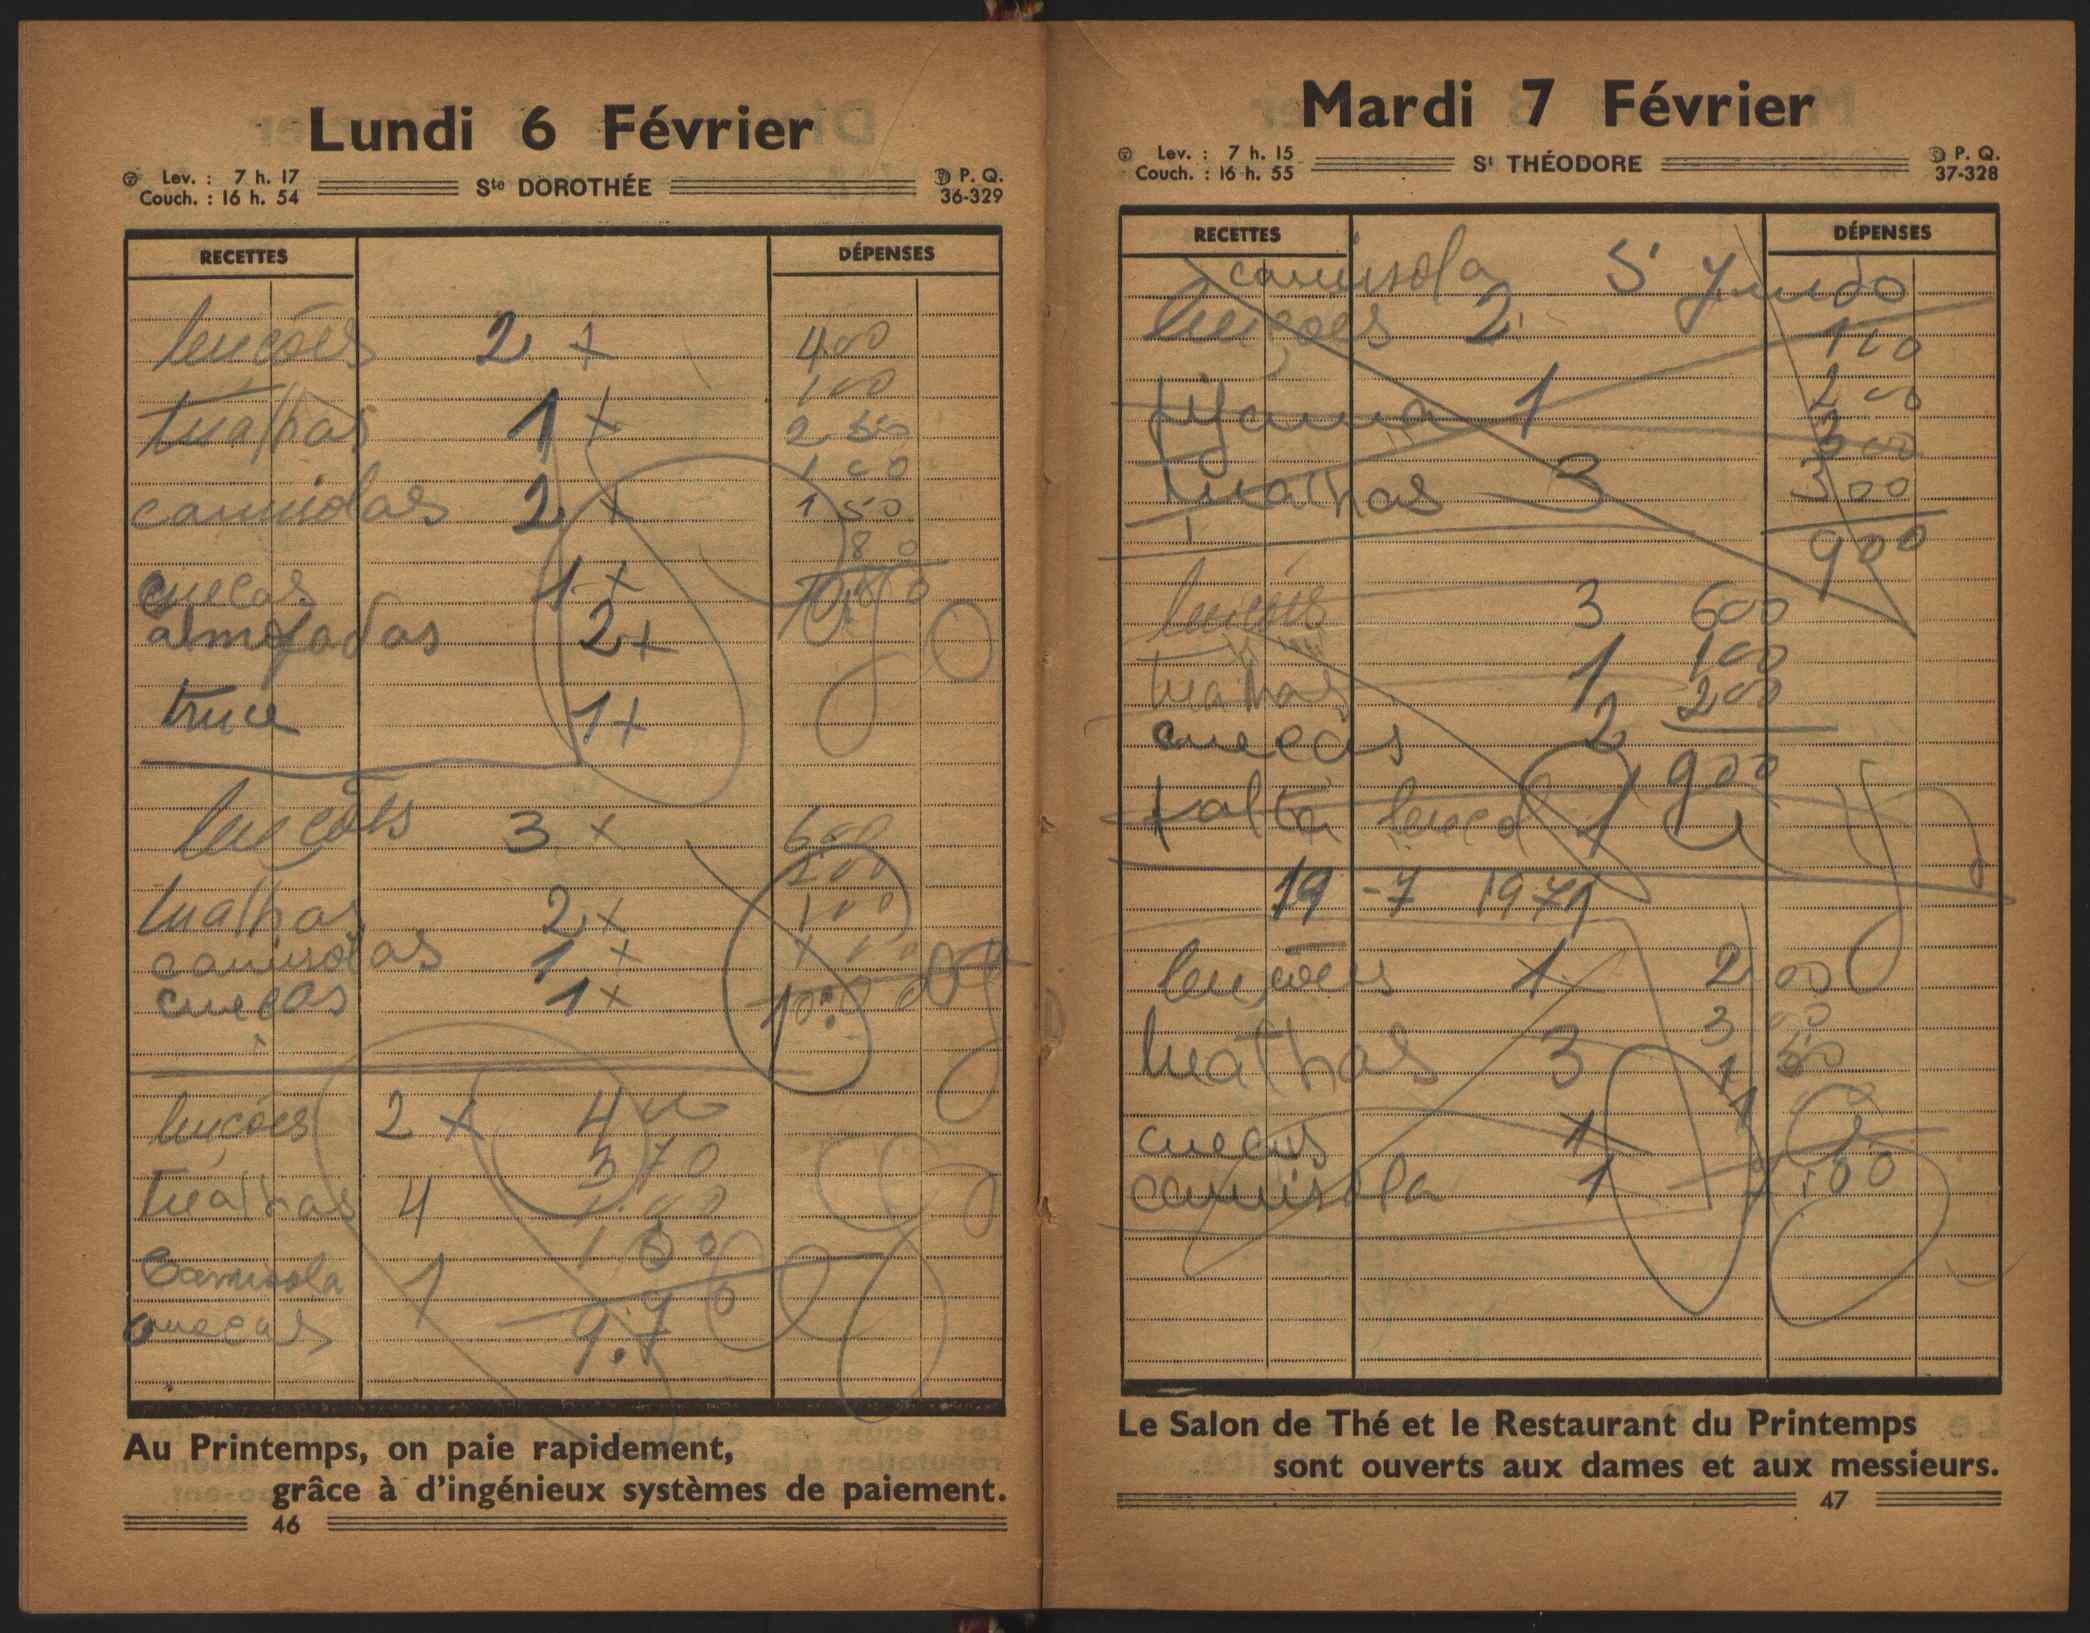 Lundi 6 Février
Lev. : 7 h. 17
Couch. : 16 h. 54
Ste DOROTHÉE
P. Q.
36-329
RECETTES
DÉPENSES
lençóes 2 x 400
tualhas 1 x 100
camisolas 2 x
cuecas 1 x
almofadas 2 x
truce 1 x
lençóes 3 x 600
tualhas 2 x
camisolas 1 x
cuecas 1 x
lençóes 2 x 400
tualhas 4 370
Camisola 1
cuecas
Au Printemps, on paie rapidement,
grâce à d'ingénieux systèmes de paiement.
46
Mardi 7 Février
Lev. : 7 h. 15
Couch. : 16 h. 55
St THÉODORE
P. Q.
37-328
RECETTES
DÉPENSES
camisola
lençoes 2
100
pijama 1 200
tualhas 3 300
900
lençóis 3 600
tualhas 1 100
cuecas 2 200
900
falta lençol 1
19 - 7 1971
lençoes 1 200
tualhas 3
cuecas 1
camisola 1
Le Salon de Thé et le Restaurant du Printemps
sont ouverts aux dames et aux messieurs.
47